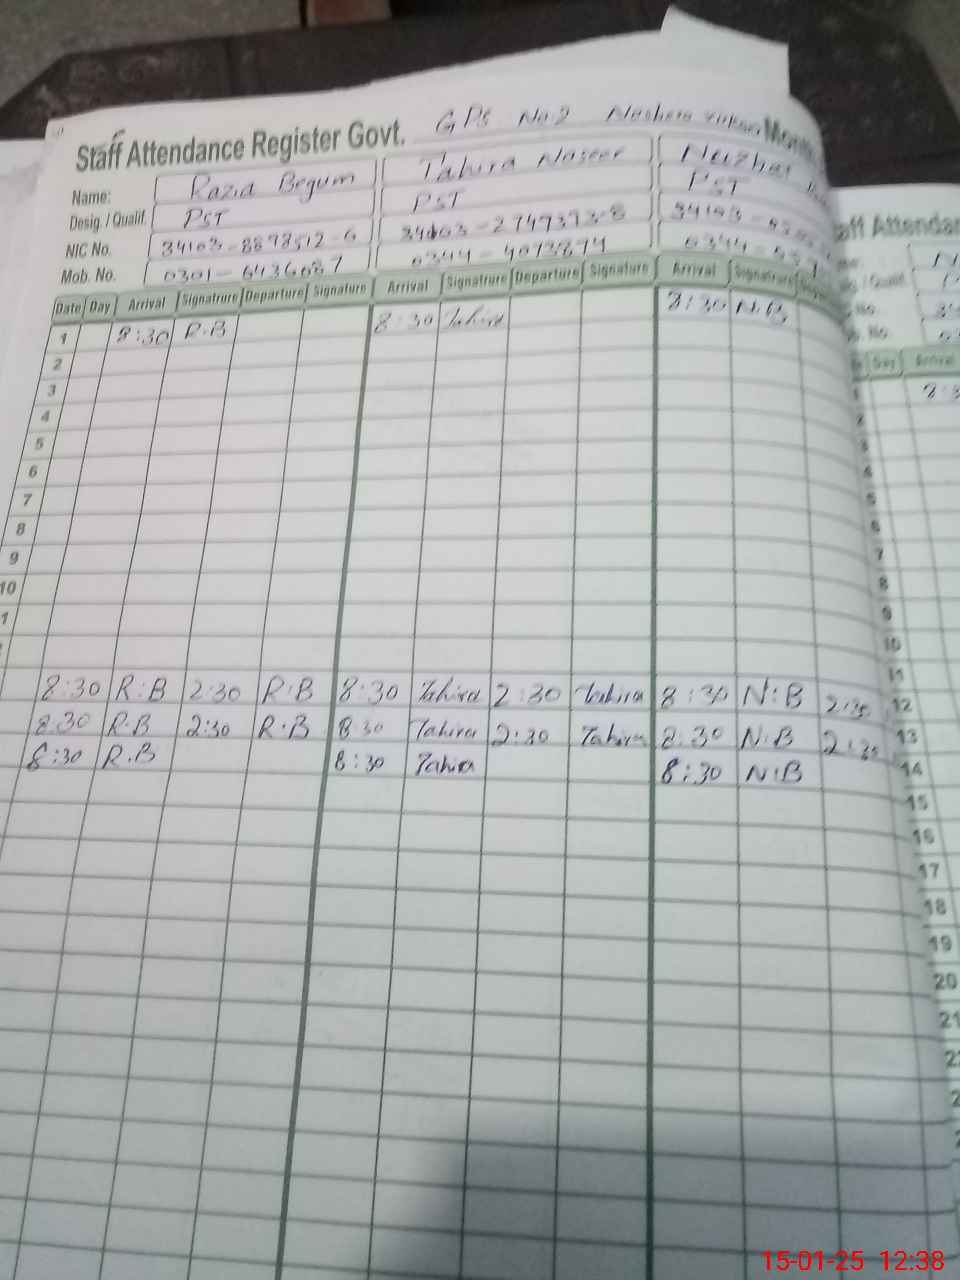 Staff Attendance Register Govt. GPS No. 2
Name: Razia Begum Tahira Naseer
Desig. / Qualif. PST PST PST
NIC No. 34103-8898512-6
Mob. No. 0301-6436087 0344-4073874 0344-
Date Day Arrival Signatrure Departure Signature Arrival Signatrure Departure Signature Arrival Signatrure
1 8:30 R.B 8:30 Tahira 8:30 N.B
2
3
4
5
6
7
8
9
10
8:30 R:B 2:30 R.B 8:30 Tahira 2:30 Tahira 8:30 N:B 2:30
8:30 R.B 2:30 R.B 8:30 Tahira 2:30 Tahira 8:30 N.B 2:30
8:30 R.B 8:30 Tahira 8:30 N:B
aff Attendan
Day Arrival
7
8
9
10
11
12
13
14
15
16
17
18
19
20
21
15-01-25 12:38